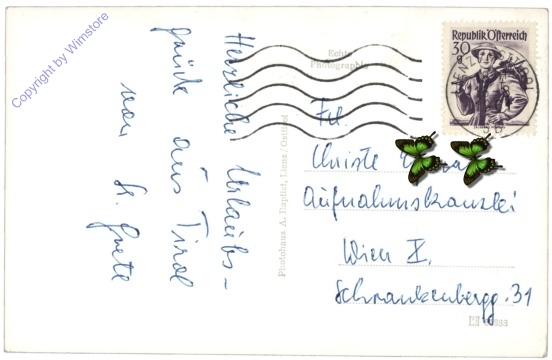 Copyright by Wimstore
Herzliche Urlaubs-
grüße aus Tirol
von
Grete
Echte
Photographie
Photohaus A. Baptist, Lienz / Osttirol
Republik Österreich
30
g
Frl.
Christe
Aufnahmskanzlei
Wien X.
Schrankenbergg. 31